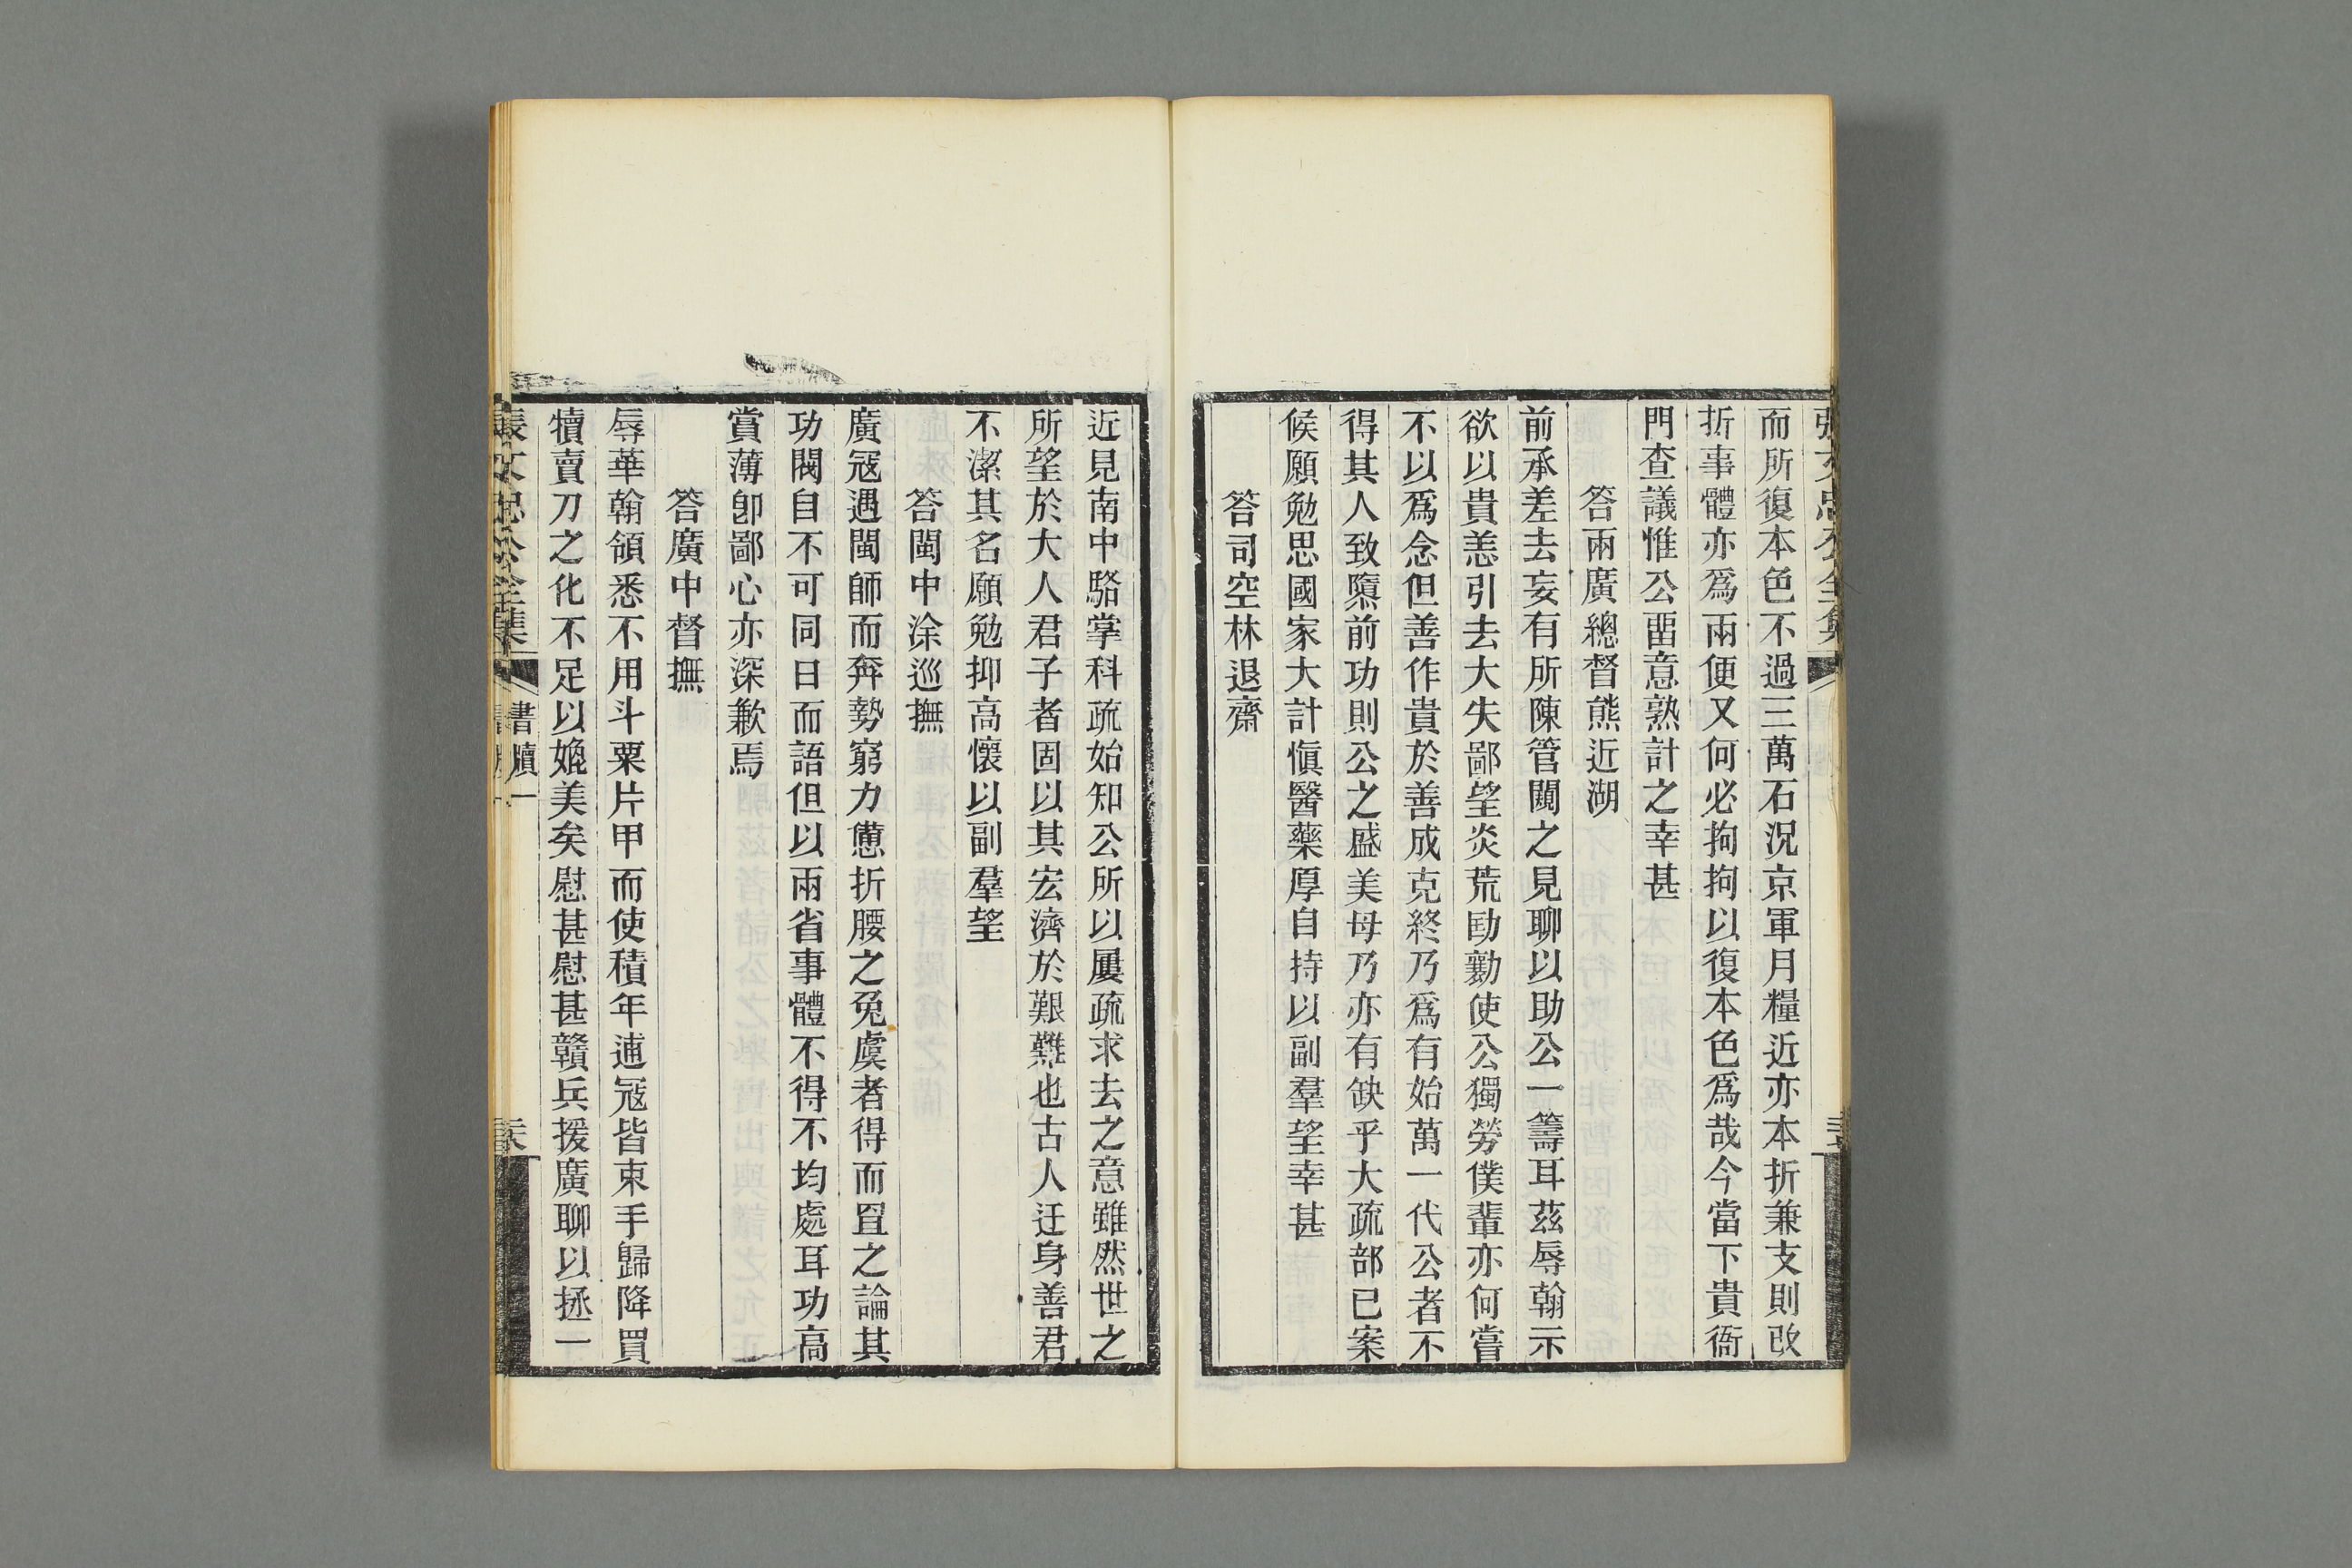 而所復本色不過三萬石況京軍月糧近亦本折兼支則改
折事體亦爲兩便又何必拘拘以復本色爲哉今當下貴衙
門查議惟公畱意熟計之幸甚
答兩廣總督熊近湖
前承差去妄有所陳管闚之見聊以助公一籌耳茲辱翰示
欲以貴恙引去大失鄙望炎荒勛勷使公獨勞僕輩亦何嘗
不以爲念但善作貴於善成克終乃爲有始萬一代公者不
得其人致隳前功則公之盛美毋乃亦有缺乎大疏部已案
候願勉思國家大計愼醫藥厚自持以副羣望幸甚
答司空林退齋
近見南中駱掌科疏始知公所以屢疏求去之意雖然世之
所望於大人君子者固以其宏濟於艱難也古人迂身善君
不潔其名願勉抑高懷以副羣望
答閩中涂巡撫
廣冦遇閩師而奔勢窮力憊折腰之兔虞者得而罝之論其
功閥自不可同日而語但以兩省事體不得不均處耳功高
賞薄卽鄙心亦深歉焉
答廣中督撫
辱華翰領悉不用斗粟片甲而使積年逋冦皆束手歸降買
犢賣刀之化不足以媲美矣慰甚慰甚贛兵援廣聊以拯一
張文忠公全集
書牘一